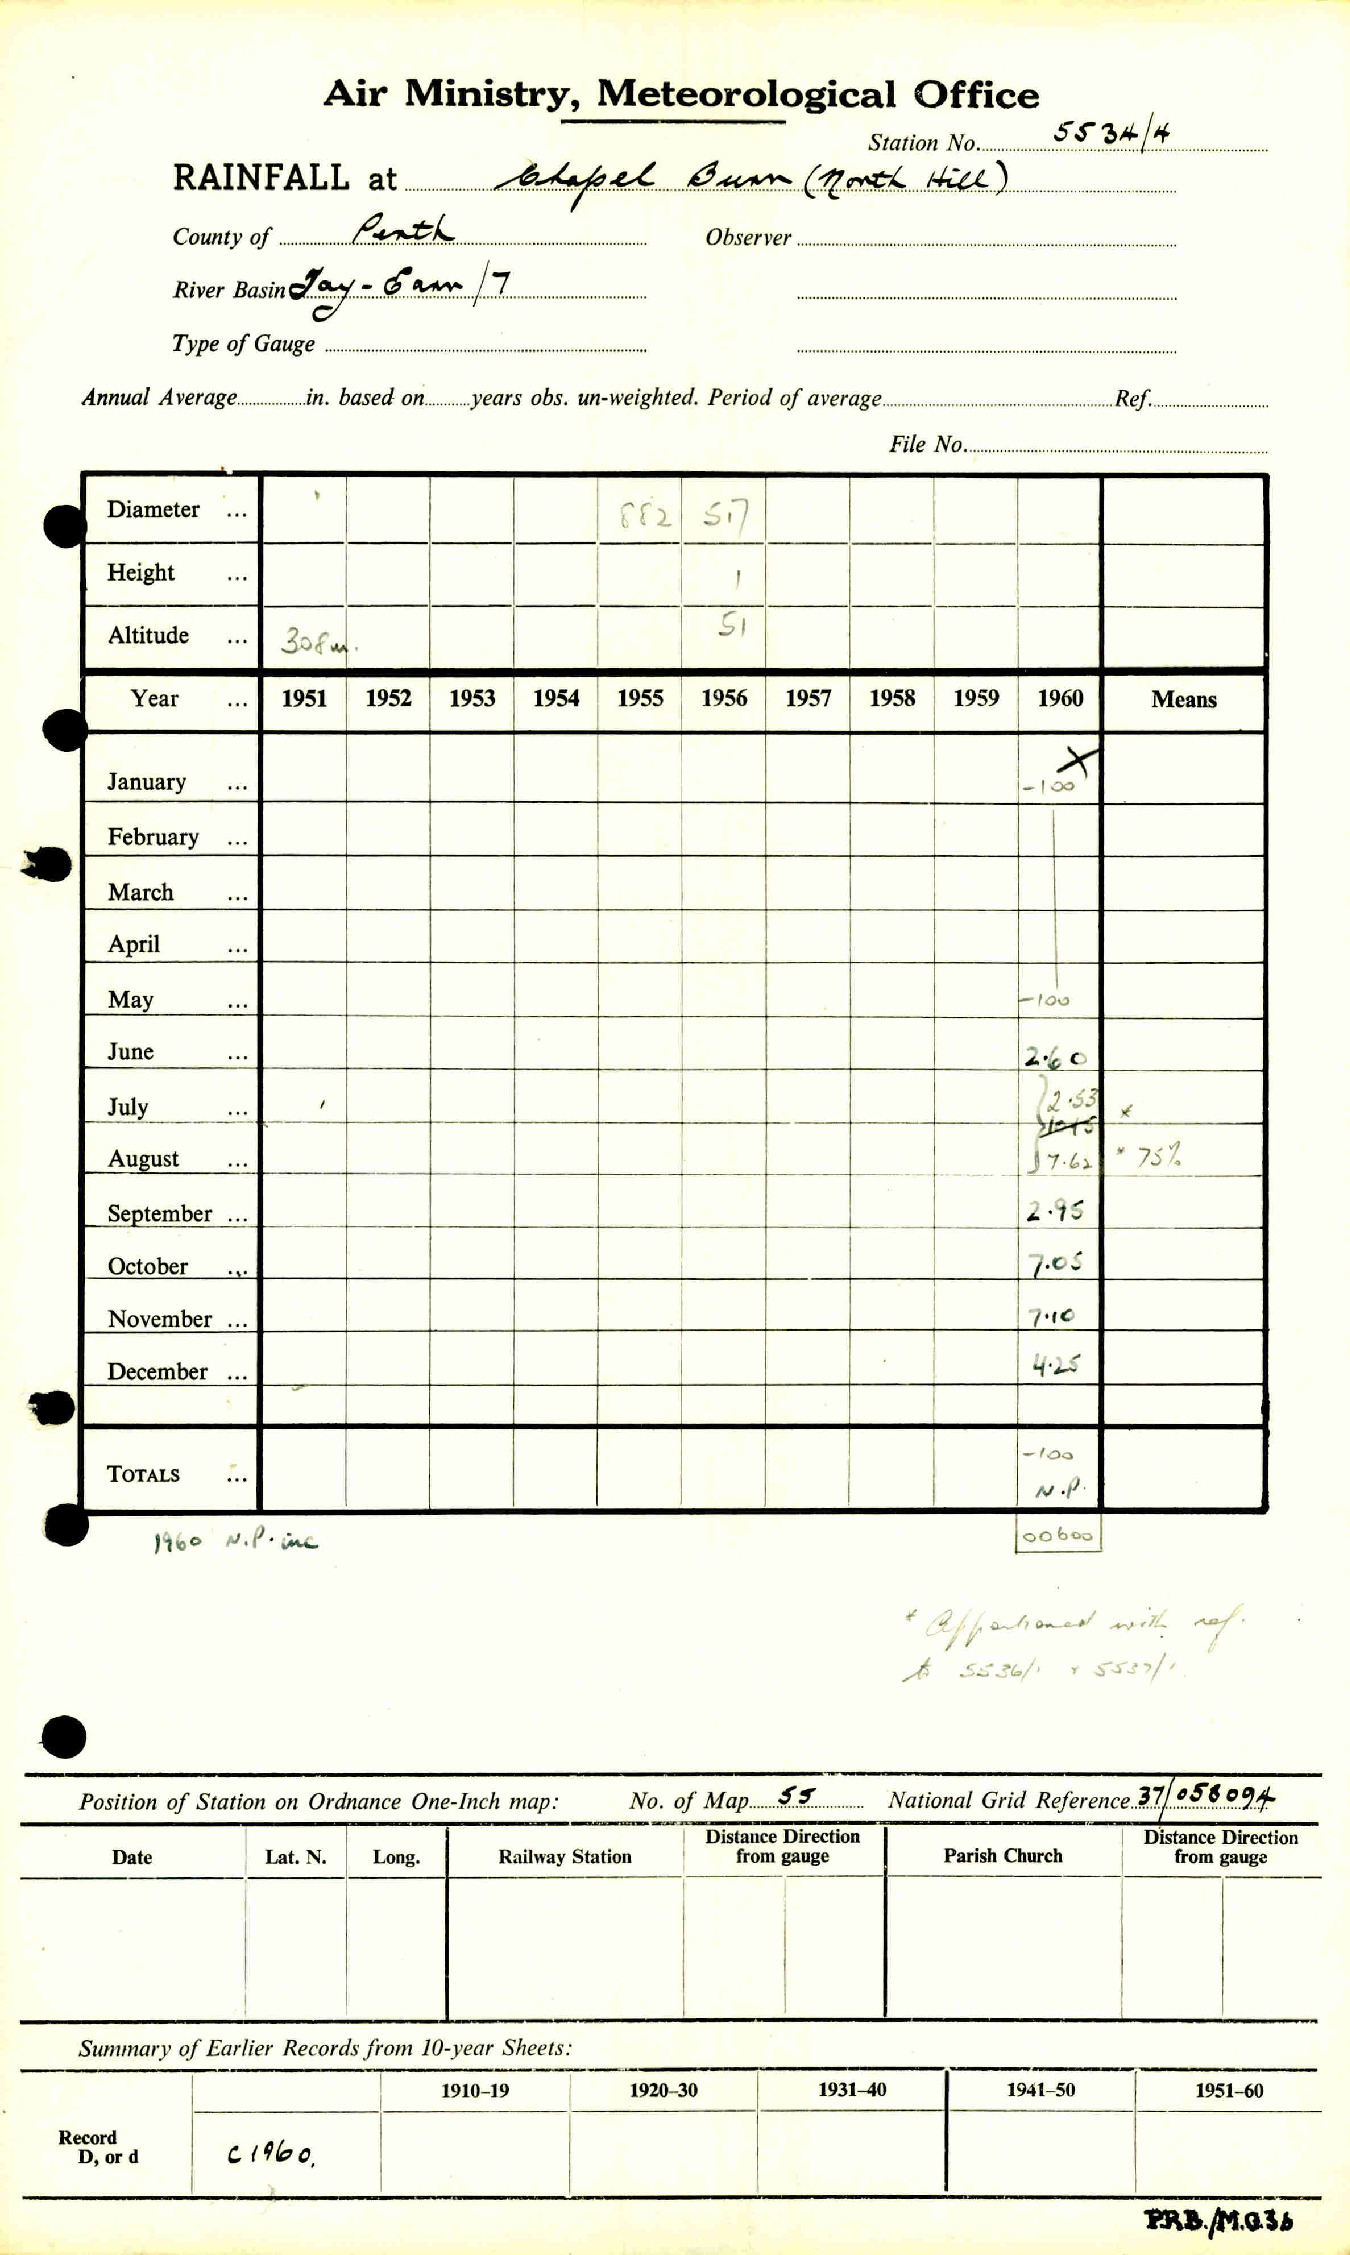 Air Ministry, Meteorological Office
Station No. 5534/4
RAINFALL at Chapel Burn (North Hill)
County of Perth Observer
River Basin Tay - Earn /7
Type of Gauge
Annual Average in. based on years obs. un-weighted. Period of average Ref.
File No.
Diameter ... 882 517
Height ... 1
Altitude ... 308m. 51
Year ... 1951 1952 1953 1954 1955 1956 1957 1958 1959 1960 Means
X
January ... -100
February ...
March ...
April ...
May ... -100
June ... 2.60
July ... 2.53 *
10.15
August ... 7.62 * 75%
September ... 2.95
October ... 7.05
November ... 7.10
December ... 4.25
-100
TOTALS ... N.P.
1960 N.P. inc 00600
* Apportioned with ref.
to 5536/1 & 5537/1.
Position of Station on Ordnance One-Inch map: No. of Map 55 National Grid Reference 37/058094
Date Lat. N. Long. Railway Station Distance Direction from gauge Parish Church Distance Direction from gauge
Summary of Earlier Records from 10-year Sheets:
1910–19 1920–30 1931–40 1941–50 1951–60
Record
D, or d c 1960.
P.R.B./M.O.36